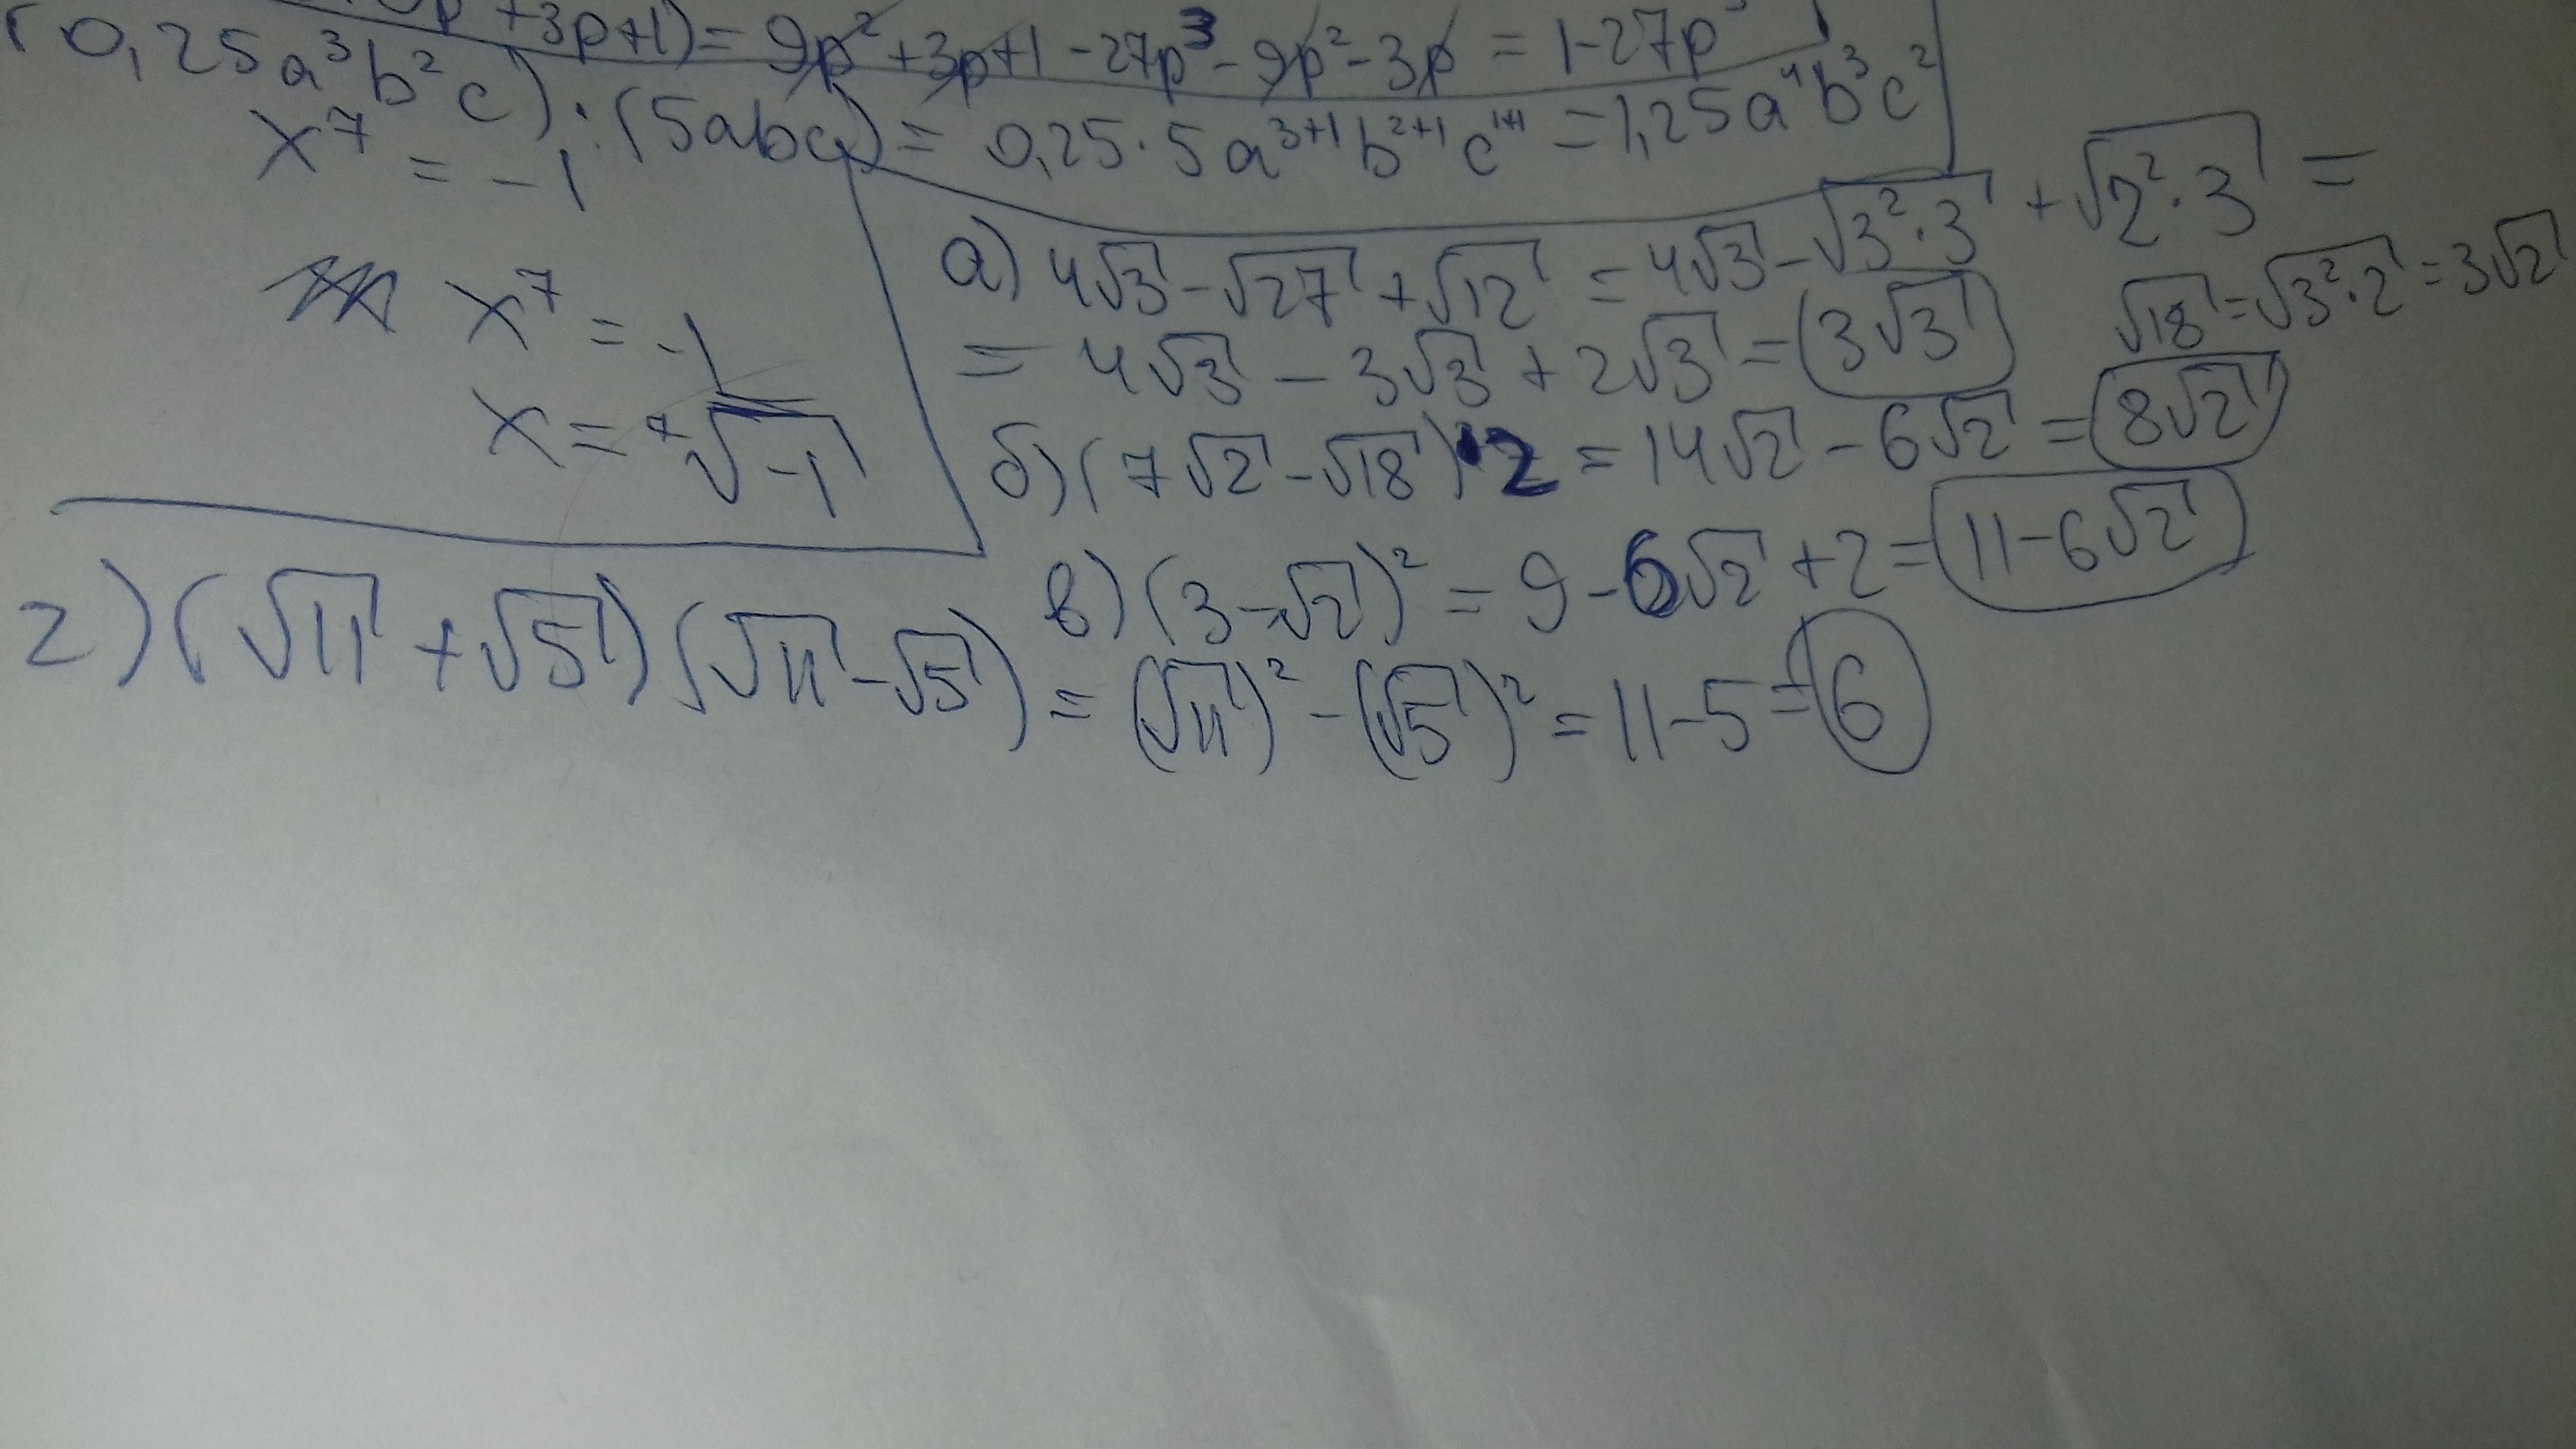 +3p+1)= 9p²+3p+1-27p³-9p²-3p = 1-27p³
(0,25a³b²c):(5abc)= 0,25·5a³⁺¹b²⁺¹c¹⁺¹=1,25a⁴b³c²
x⁷ = -1
x⁷ = -1
x = ⁷√-1
а) 4√3-√27+√12 = 4√3-√3²·3+√2²·3 =
= 4√3-3√3+2√3=3√3
√18=√3²·2=3√2
б)(7√2-√18)·2 = 14√2-6√2=8√2
в)(3-√2)² = 9-6√2+2=11-6√2
г)(√11+√5)(√11-√5)=(√11)²-(√5)²=11-5=6